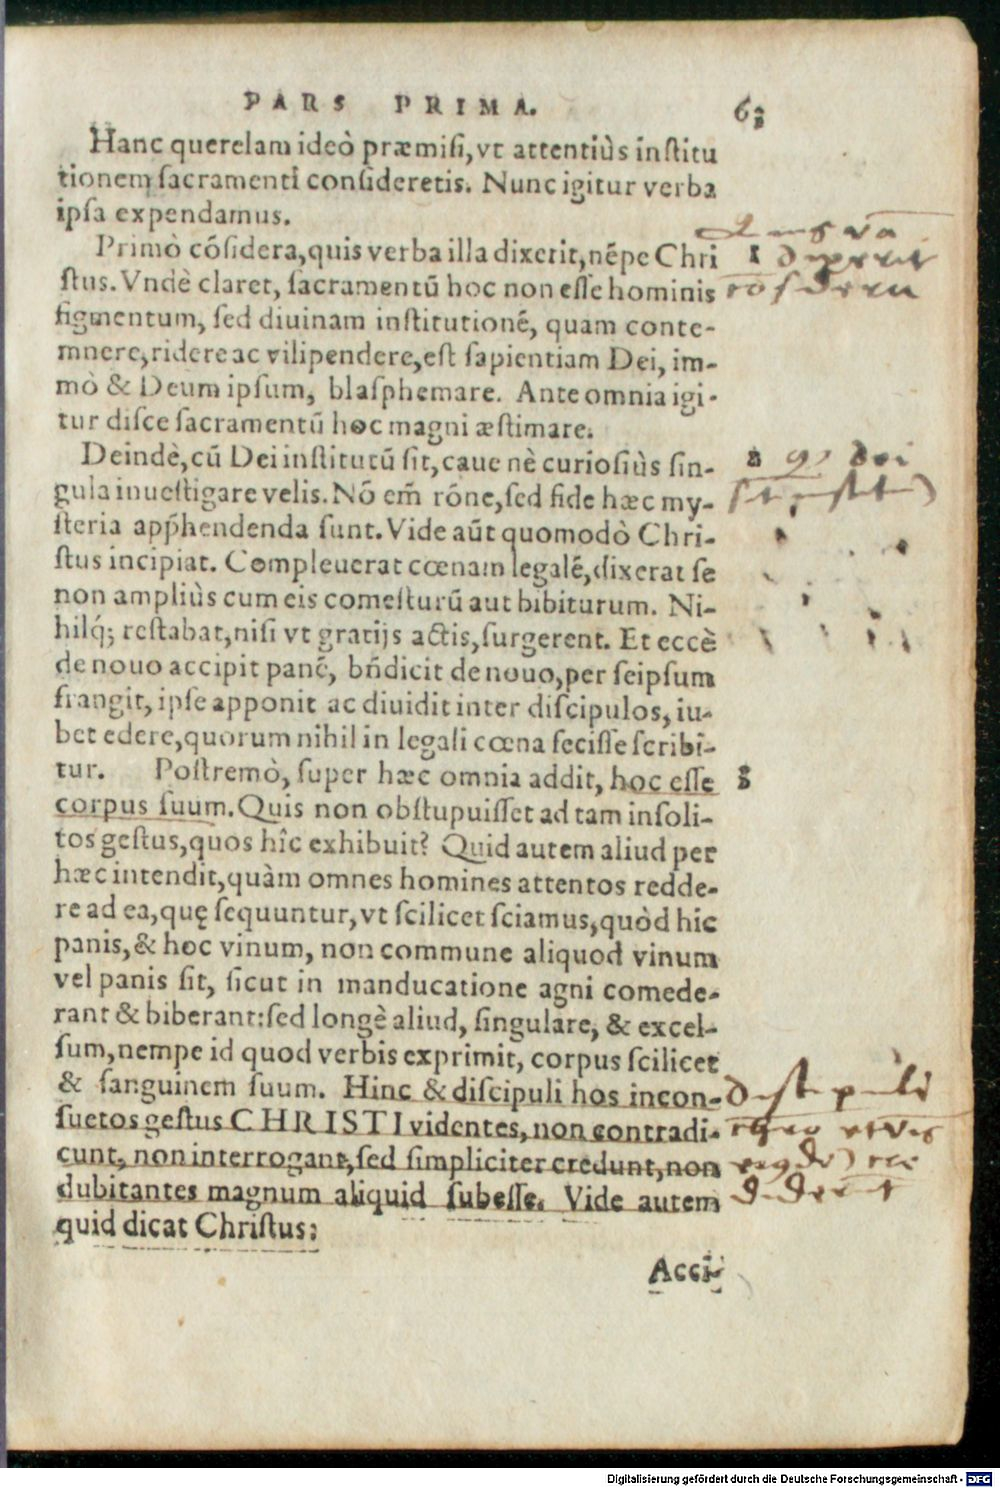 PARS PRIMA. 63
Hanc querelam ideò præmisi, vt attentiùs institu
tionem sacramenti consideretis. Nunc igitur verba
ipsa expendamus.
Primò cõsidera, quis verba illa dixerit, nẽpe Chri 1
stus. Vndè claret, sacramentũ hoc non esse hominis
figmentum, sed diuinam institutionẽ, quam conte-
mnere, ridere ac vilipendere, est sapientiam Dei, im-
mò & Deum ipsum, blasphemare. Ante omnia igi-
tur disce sacramentũ hoc magni æstimare.
Deindè, cũ Dei institutũ sit, caue nè curiosiùs sin- 2 dei
gula inuestigare velis. Nõ em̃ rõne, sed fide hæc my-
steria app̃hendenda sunt. Vide aũt quomodò Chri-
stus incipiat. Compleuerat cœnam legalẽ, dixerat se
non ampliùs cum eis comesturũ aut bibiturum. Ni-
hilq́; restabat, nisi vt gratijs actis, surgerent. Et eccè
de nouo accipit panẽ, bñdicit de nouo, per seipsum
frangit, ipse apponit ac diuidit inter discipulos, iu-
bet edere, quorum nihil in legali cœna fecisse scribi-
tur. Postremò, super hæc omnia addit, hoc esse 3
corpus suum. Quis non obstupuisset ad tam insoli-
tos gestus, quos hîc exhibuit? Quid autem aliud per
hæc intendit, quàm omnes homines attentos redde-
re ad ea, quę sequuntur, vt scilicet sciamus, quòd hic
panis, & hoc vinum, non commune aliquod vinum
vel panis sit, sicut in manducatione agni comede-
rant & biberant: sed longè aliud, singulare, & excel-
sum, nempe id quod verbis exprimit, corpus scilicet
& sanguinem suum. Hinc & discipuli hos incon-
suetos gestus CHRISTI videntes, non contradi-
cunt, non interrogant, sed simpliciter credunt, non
dubitantes magnum aliquid subesse. Vide autem
quid dicat Christus:
Acci-
Digitalisierung gefördert durch die Deutsche Forschungsgemeinschaft - DFG